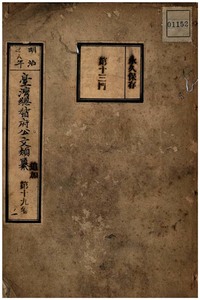 01152
永久保存
第十三門
明治
三八年
臺灣總督府公文類纂
追加
第十九卷